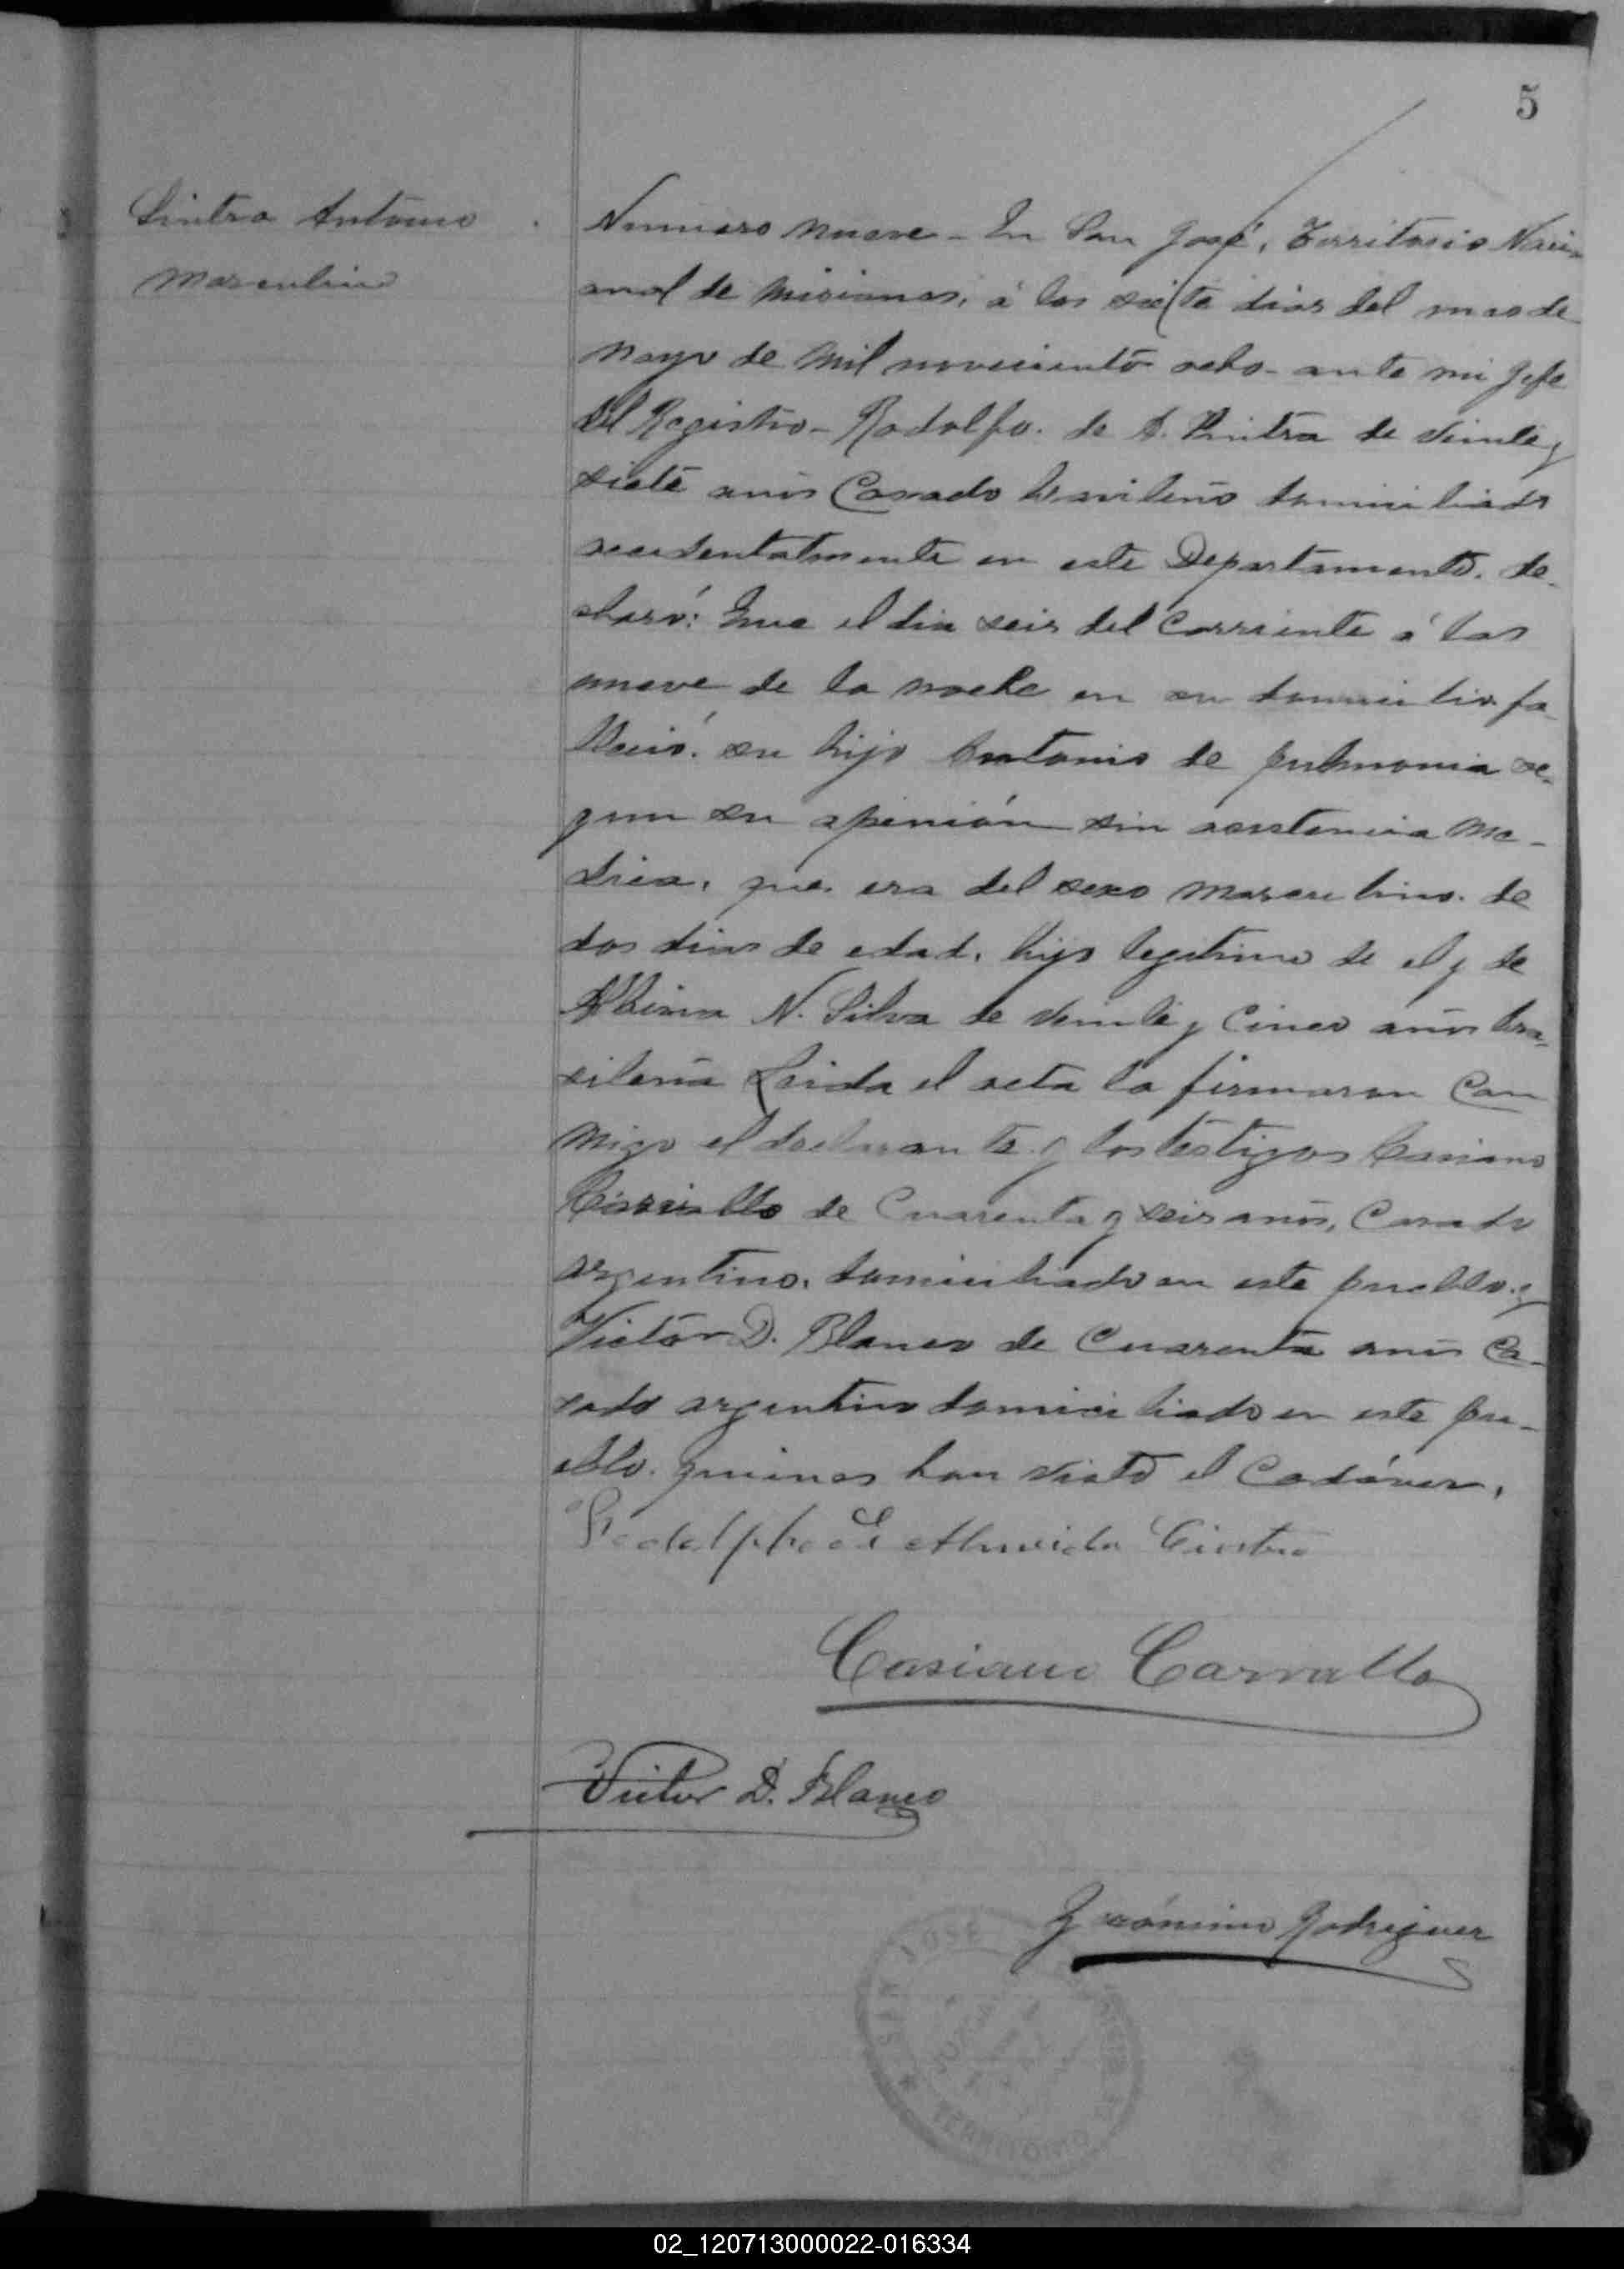 5
Sintra Antonio
Masculino
Numero nueve - En San José, Territorio Naci-
onal de Misiones, á los siete dias del mes de
Mayo de mil novecientos ocho - ante mi Jefe
del Registro - Rodolfo. de A. Sintra de veinte y
siete años Casado brasileño domiciliado
accidentalmente en este Departamento. de-
claró: Que el dia seis del Corriente á las
nueve de la noche en su domicilio fa-
lleció. su hijo Antonio de pulmonia se-
gun su opinión sin asistencia Me-
dica, que era del sexo masculino. de
dos dias de edad, hijo legitimo de el y de
Albina N. Silva de veinte y Cinco años bra-
sileña Leida el acta la firmaron Con
migo el declarante y los testigos Casiano
Carvallo de Cuarenta y seis años, Casado
argentino, domiciliado en este pueblo. y
Victor D. Blanco de Cuarenta años Ca-
sado argentino domiciliado en este pu-
eblo. quienes han visto el Cadáver,
Rodolpho de Almeida Cintra
Casiano Carvallo
Victor D. Blanco
Gerónimo Rodriguez
SAN JOSE
TERRITORIO
02_120713000022-016334